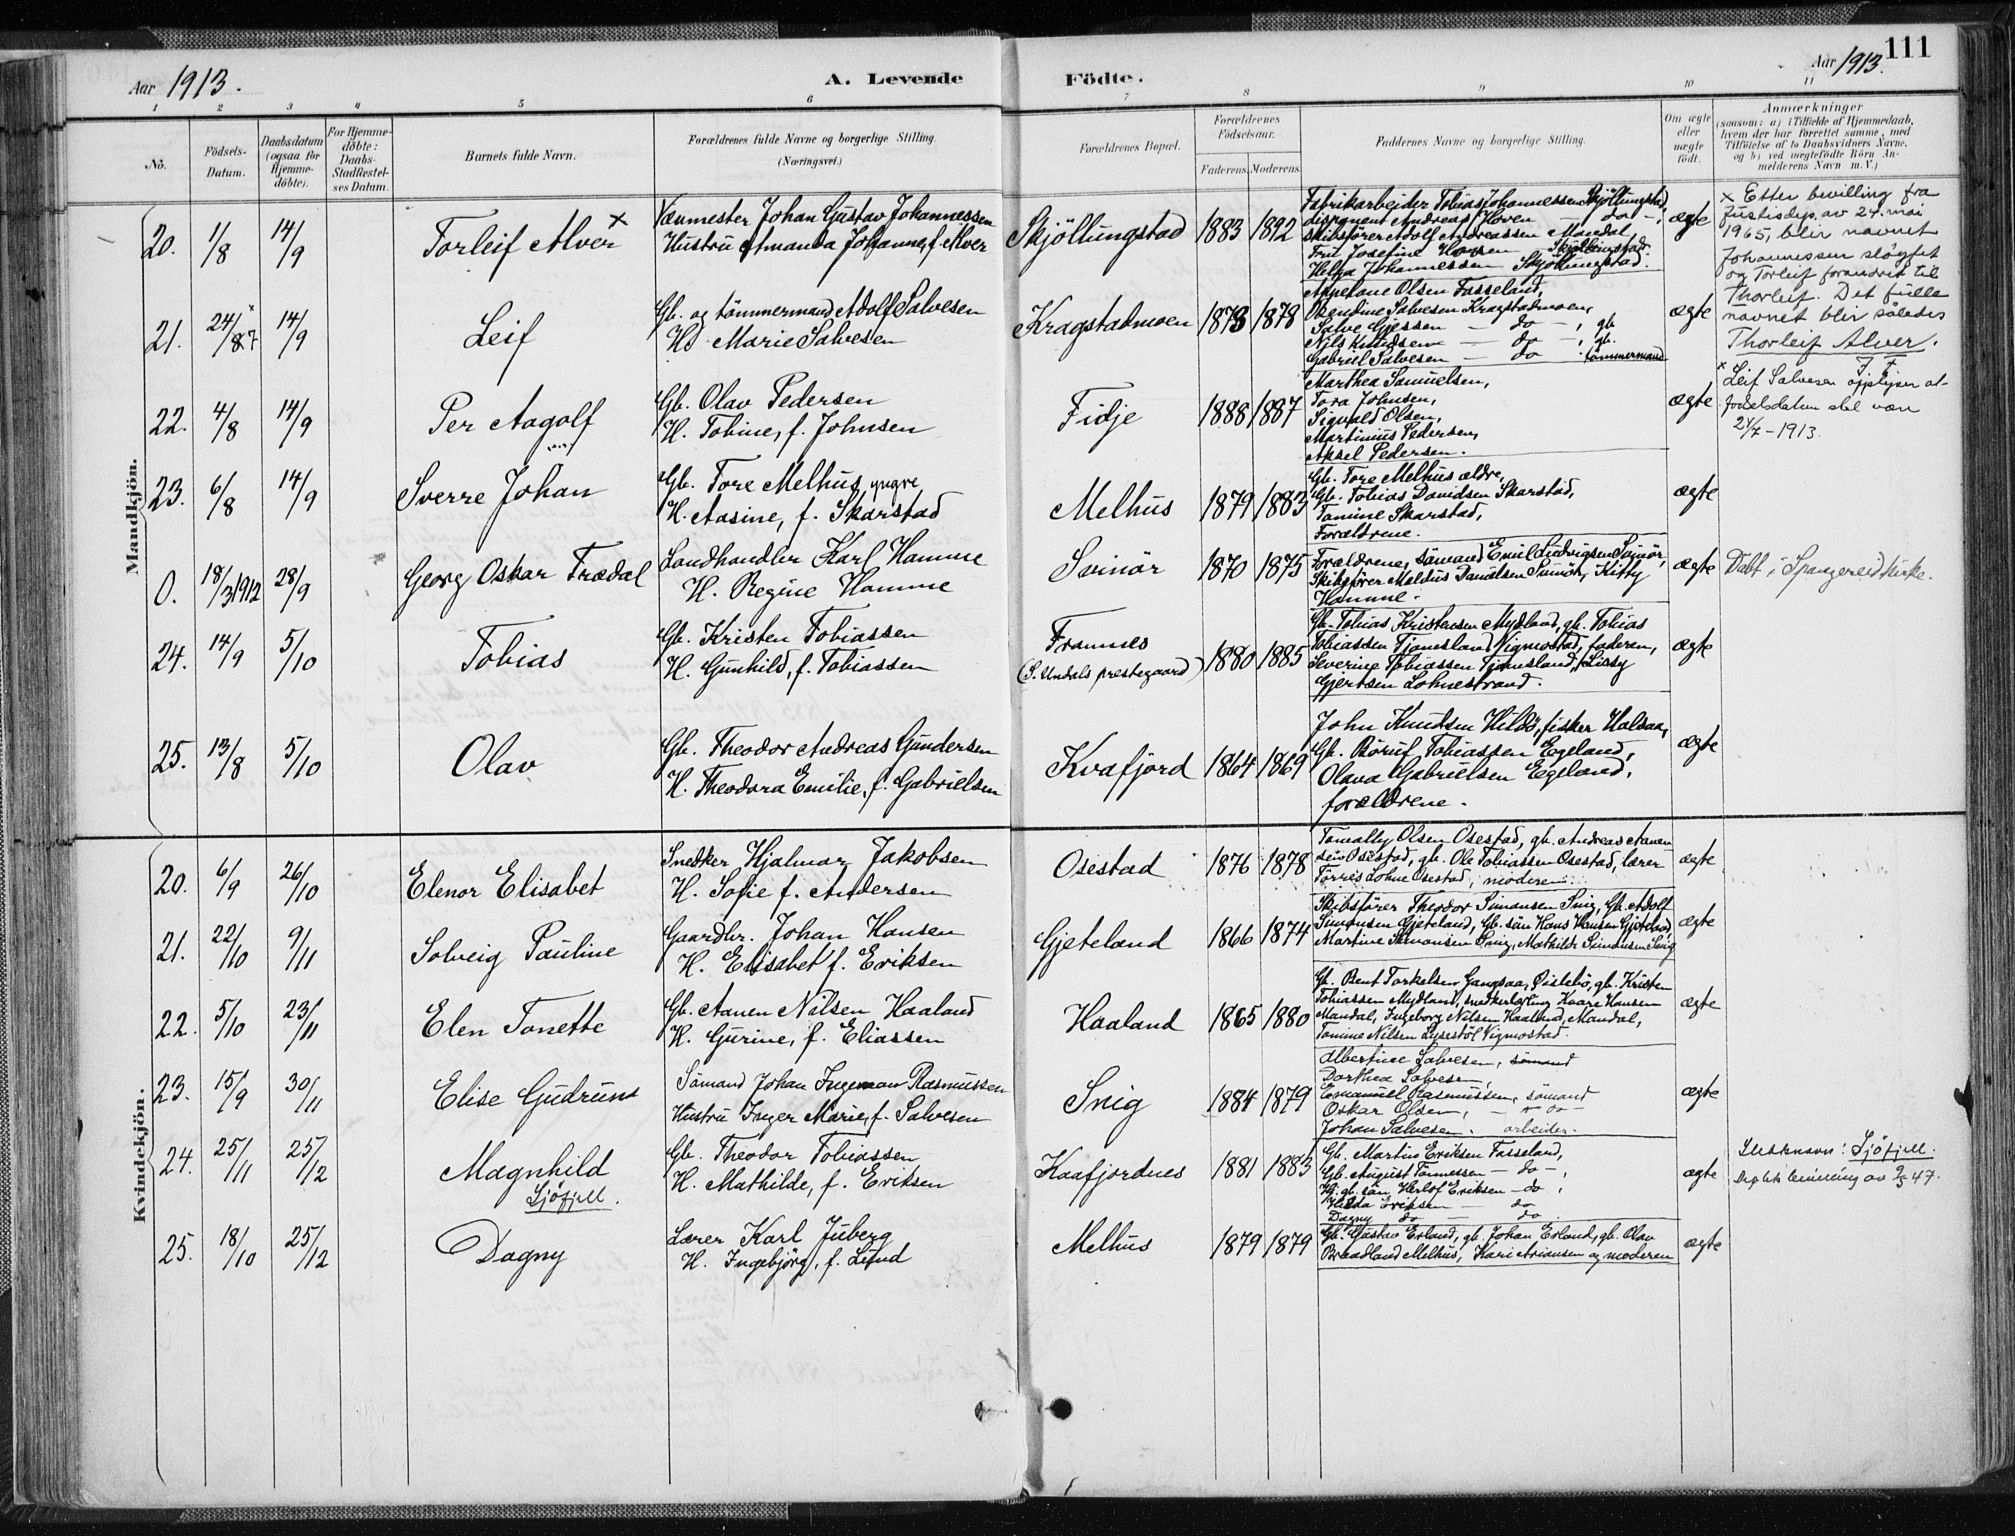 Aar 1913.
A. Levende
Fødte.
Aar 1913.
111
1 2 3 4 5 6 7 8 9 10 11
No.
Fødsels-
Datum.
Daabsdatum
(ogsaa for
Hjemme-
döbte).
For Hjemme-
döbte:
Daabs-
Stadfæstel-
ses Datum.
Barnets fulde Navn.
Forældrenes fulde Navne og borgerlige Stilling.
(Næringsvei.)
Forældrenes Bopæl.
Forældrenes
Födselsaar.
Faderens. Moderens.
Faddernes Navne og borgerlige Stilling.
Om ægte
eller
uægte
født.
Anmærkninger
(saasom: a) i Tilfælde af Hjemmedaab,
hvem der har forrettet samme, med
Tilföielse af to Daabsvidners Navne,
og b) ved uægtefödte Börn An-
melderens Navn m. V.)
Mandkjön.
20. 1/8 14/9 Torleif Alver x
Johan Gustav Johannessen
Hustru Amanda Johanne, f. Alver
Skjöllungstad 1883 1892
Fabrikarbeider Tobias Johannessen Skjöllungstad,
disponent Andreas Hoven — do —,
skibsförer Adolf Andreassen Mandal,
Fru Josefine Hoven Skjöllingstad.
Helga Johannessen Skjöllungstad.
ægte
x Etter bevilling fra
Justisdep. av 24. mai
1965, blir navnet
Johannessen sløyfet
og Torleif forandret til
Thorleif. Det fulle
navnet blir således
Thorleif Alver.
21. 24/8 7 x 14/9 Leif
Gb. og tömmermand Adolf Salvesen
H. Marie Salvesen
Kragstadmoen 1873 1878
Olsen Fasseland,
Salvesen Kragstadmoen,
Salve Gjessen — do —, gb
Nils Knudsen — do —, gb.
Gabriel Salvesen — do tömmermand
ægte
x Leif Salvesen opplyser at
fødselsdatum skal være
24/7 - 1913.
22. 4/8 14/9 Per Aagolf
Gb. Olav Pedersen
H. Tobine, f. Johnsen
Fidje 1888 1887
Marthea Samuelsen,
Tora Johnsen,
Sigvald Olsen,
Martinius Pedersen,
Aksel Pedersen.
ægte
23. 6/8 14/9 Sverre Johan
Gb. Tore Melhus, yngre
H. Aasine, f. Skarstad
Melhus 1879 1883
Gb. Tore Melhus ældre,
Gb. Tobias Davidsen Skarstad,
Tomine Skarstad,
Forældrene.
ægte
0. 18/3 1912 28/9 Georg Oskar Frædal
Landhandler Karl Hamme
H. Regine Hamme
Svinör 1870 1875
Forældrene, sömand Emil Ludvigsen Svinör,
Skibsförer Danielsen Svinör, Kitty
Hamme.
ægte
Döbt i Spangereid kirke.
24. 14/9 5/10 Tobias
Gb. Kristen Tobiassen
H. Gunhild, f. Tobiassen
Framnes
(S. Undals prestegaard) 1880 1885
Gb. Tobias Kristensen Mydland, gb. Tobias
Tobiassen Tjomsland Vigmostad, faderen,
Severine Tobiassen Tjomsland, Lissy
Gjertsen Lohnestrand.
ægte
25. 13/8 5/10 Olav
Gb. Theodor Andreas Gundersen
H. Theodora Emilie, f. Gabrielsen
Kvafjord 1864 1869
John Knudsen Hille, fisker Halsaa,
Gb. Böruf Tobiassen Egeland,
Olava Gabrielsen Egeland,
forældrene.
ægte
Kvindekjön.
20. 6/9 26/10 Elenor Elisabet
Snedker Hjalmar Jakobsen
H. Sofie f. Andersen
Osestad 1876 1878
Olsen Osestad, gb. Andreas Aanen
sen Osestad, gb. Ole Tobiassen Osestad, lærer
Torris Lohne Osestad, moderen.
ægte
21. 22/10 9/11 Solveig Pauline
Gaardbr. Johan Hansen
H. Elisabet f. Eriksen
Gjeteland 1866 1874
Skibsförer Theodor Simonsen Snig, Gb. Adolf
Simonsen Gjeteland, Gb. sön Hans Hansen Gjeteland,
Martine Simonsen Snig, Mathilde Simonsen Snig
ægte
22. 5/10 23/11 Elen Tonette
Gb. Aanen Nilsen Haaland
H. Gurine, f. Eliassen
Haaland 1865 1880
Gb. Bent Torkelsen Gangsaa, Öislebö, gb. Kristen
Tobiassen Mydland, snedkerlærling Kaare Hansen
Mandal, Ingeborg Nilsen Haaland, Mandal,
Tomine Nilsen Lysestöl Vigmostad.
ægte
23. 15/9 30/11 Elise Gudrun
Sömand Johan Ingeman Rasmussen
Hustru Inger Marie, f. Salvesen
Snig 1884 1879
Albertine Salvesen, sömand
Dorthea Salvesen,
Emanuel Rasmussen, sömand
Oskar Olsen, — do —
Johan Salvesen. arbeider.
ægte
24. 25/11 25/12 Magnhild
Sjöfjell.
Gb. Theodor Tobiassen
H. Mathilde, f. Eriksen
Kaafjordnes 1881 1883
Gb. Martin Eriksen Fasseland,
Gb. August Tønnessen — do —,
gb. sön Herlof Eriksen — do,
Hilda Eriksen — do
Dagny do — do.
ægte
Slektsnavn: Sjöfjell.
25. 18/10 25/12 Dagny
Lærer Karl Juberg
H. Ingebjörg, f. Lund
Melhus 1879 1879
Gb. Gustav Erland, gb. Johan Erland, gb. Olav
Braadland Melhus, Kari Ariansen og moderen
ægte